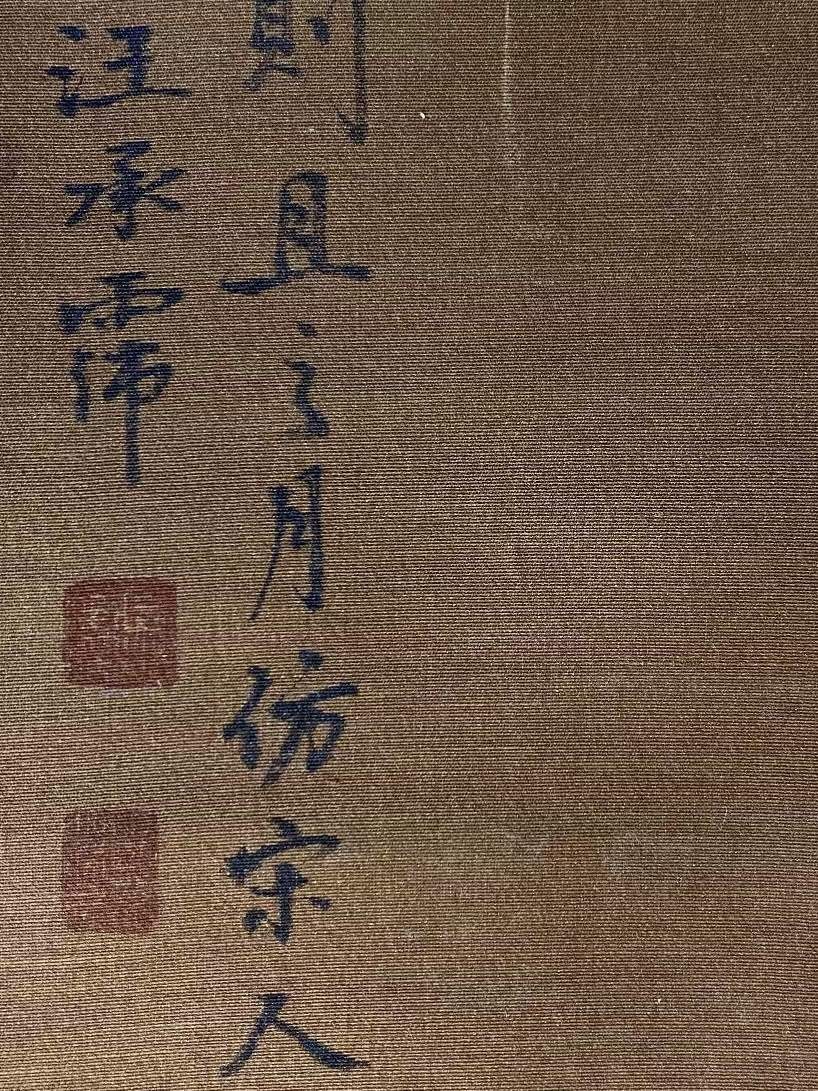 則且之月仿宋人
汪承霈